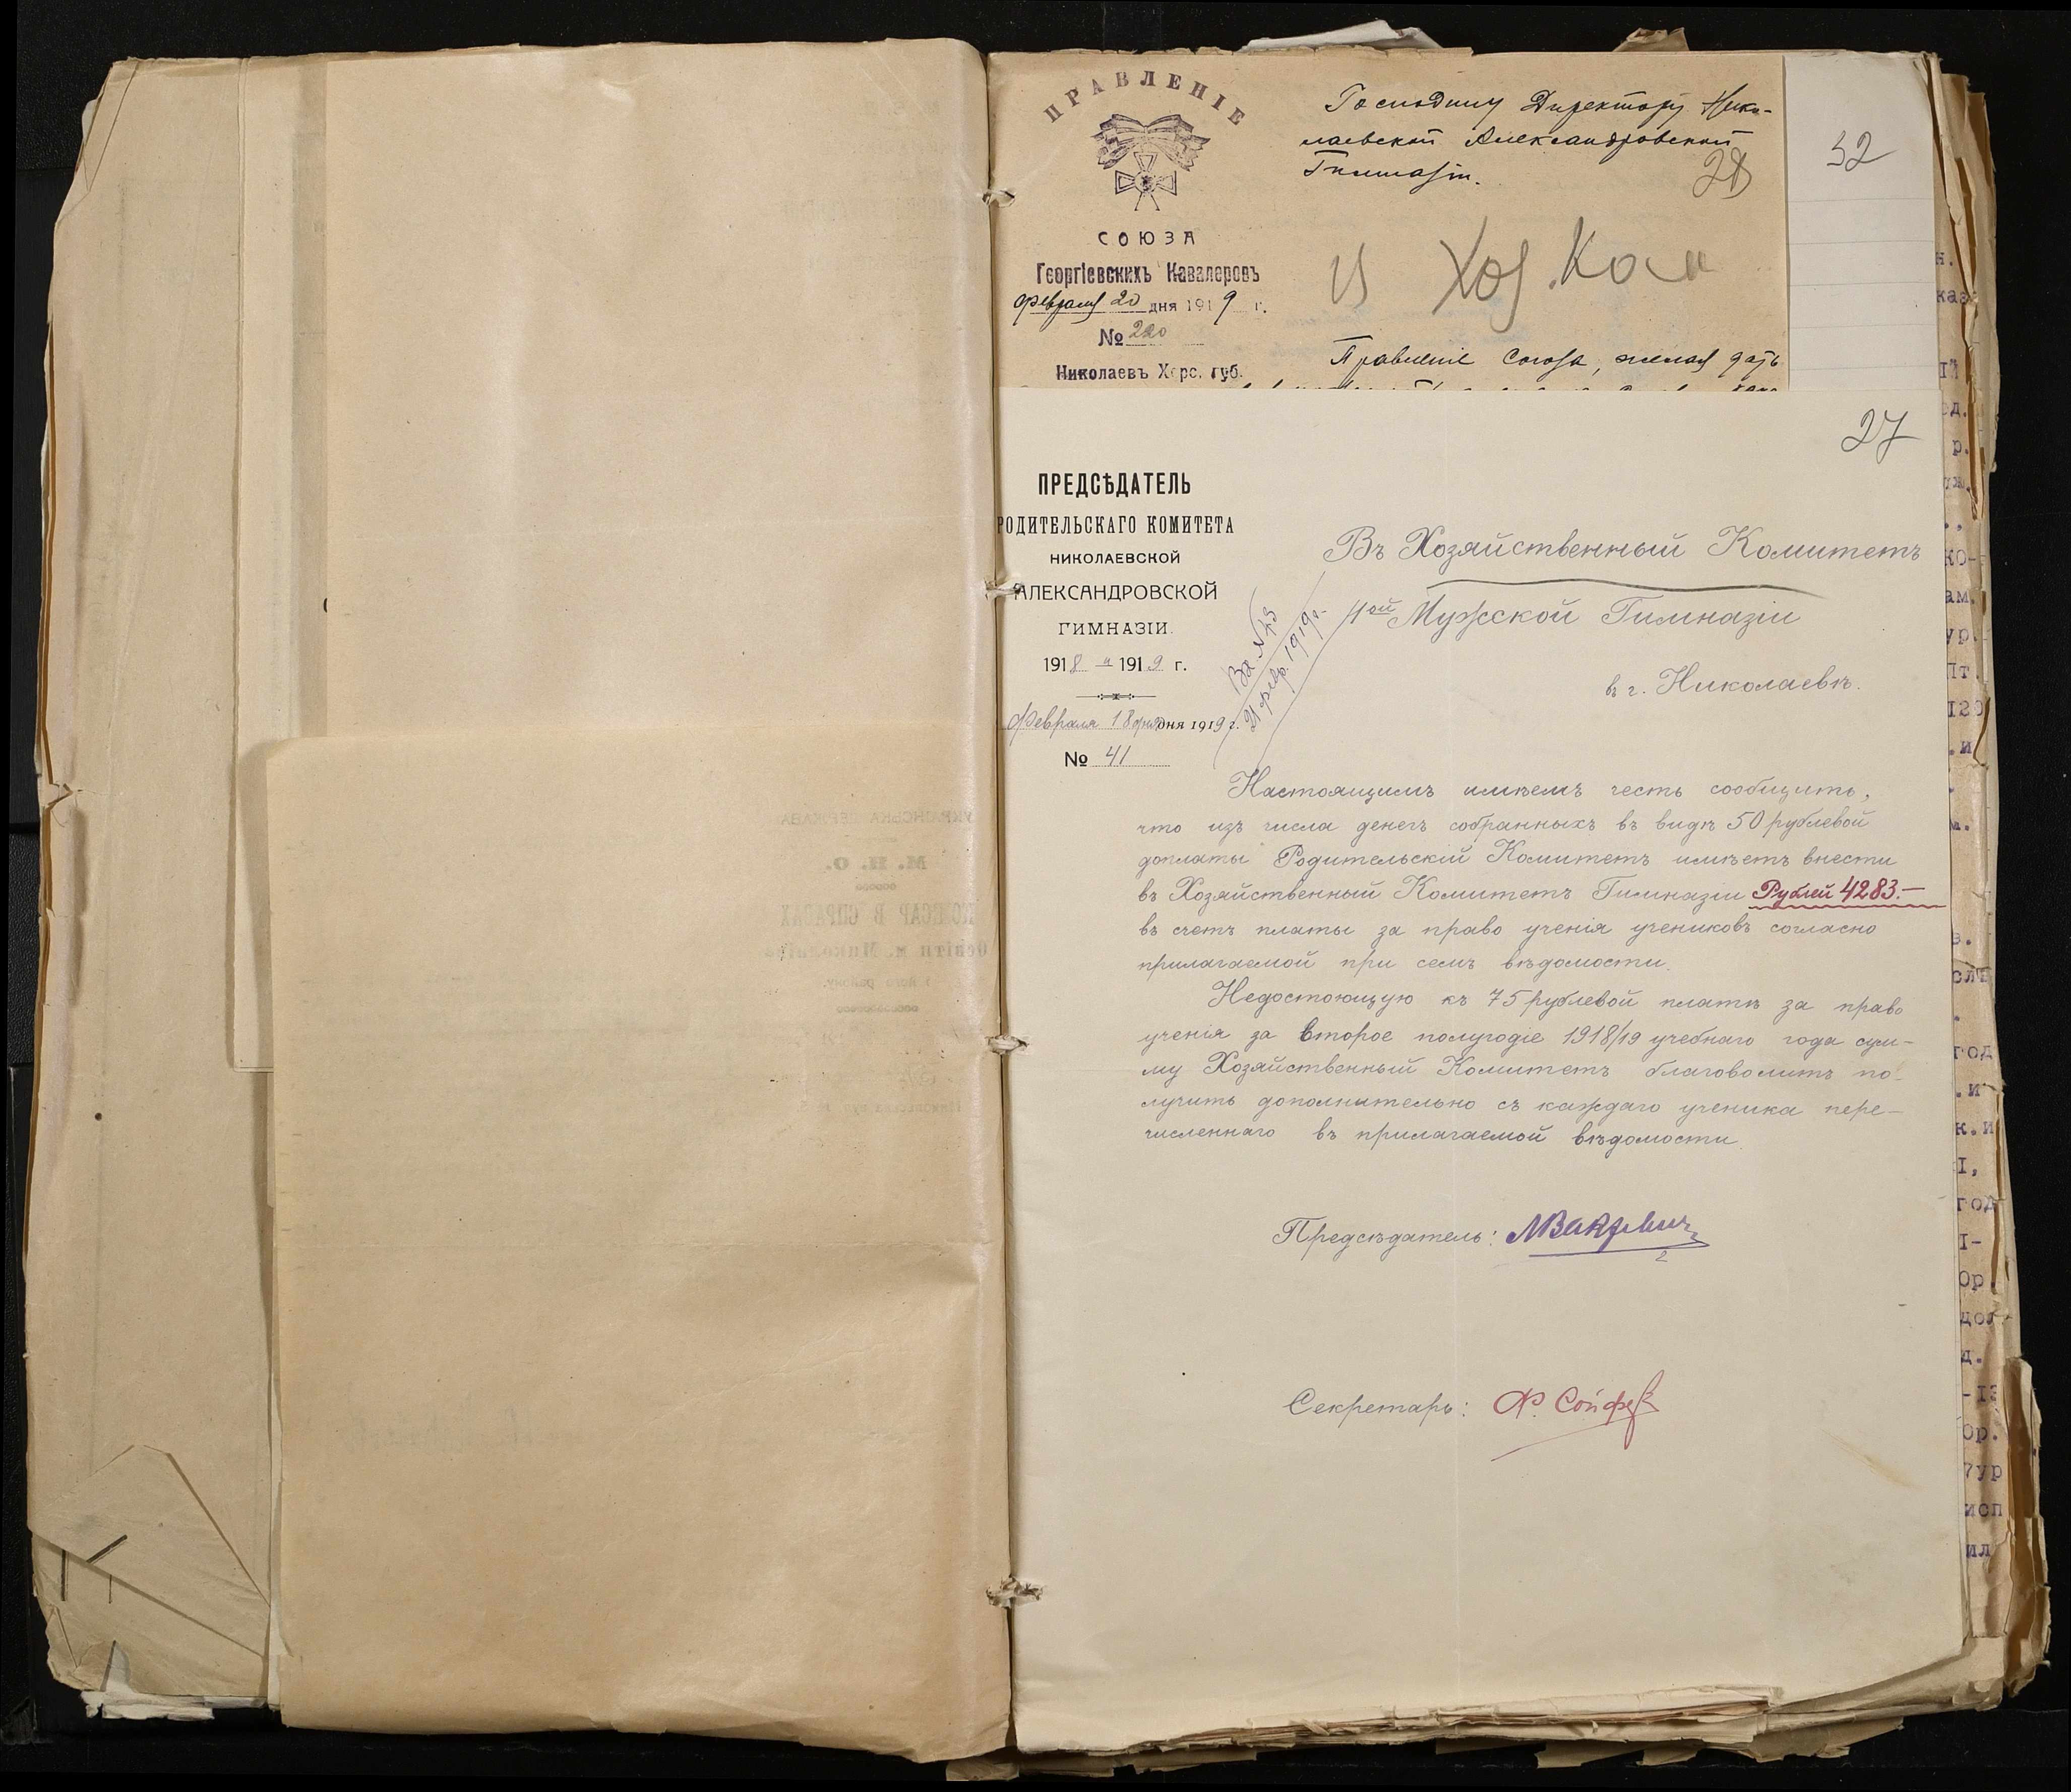 ПРАВЛЕНІЕ
СОЮЗА
Георгіевскихъ Кавалеровъ
Февраля 20 дня 1919 г.
№ 220
Николаевъ Херс. губ.
Господину Директору Нико-
лаевской Александровской
Гимназіи.
28
32
Хоз. Ком
Правленіе Союза, желая дать
27
ПРЕДСѢДАТЕЛЬ
РОДИТЕЛЬСКАГО КОМИТЕТА
НИКОЛАЕВСКОЙ
АЛЕКСАНДРОВСКОЙ
ГИМНАЗІИ.
1918 – 1919 г.
Февраля 18 дня 1919 г.
№ 41
Вх №
21 февр. 1919 г.
Въ Хозяйственный Комитетъ
1ой Мужской Гимназіи
въ г. Николаевѣ.
Настоящимъ имѣемъ честь сообщить,
что изъ числа денегъ собранныхъ въ видѣ 50 рублевой
доплаты Родительскій Комитетъ имѣетъ внести
въ Хозяйственный Комитетъ Гимназіи Рублей 4283.—
въ счетъ платы за право ученія учениковъ согласно
прилагаемой при семъ вѣдомости.
Недостающую къ 75 рублевой платѣ за право
ученія за второе полугодіе 1918/19 учебнаго года сум-
му Хозяйственный Комитетъ благоволитъ по-
лучить дополнительно съ каждаго ученика пере-
численнаго въ прилагаемой вѣдомости.
Предсѣдатель:
Секретарь: Ф. Сойфер